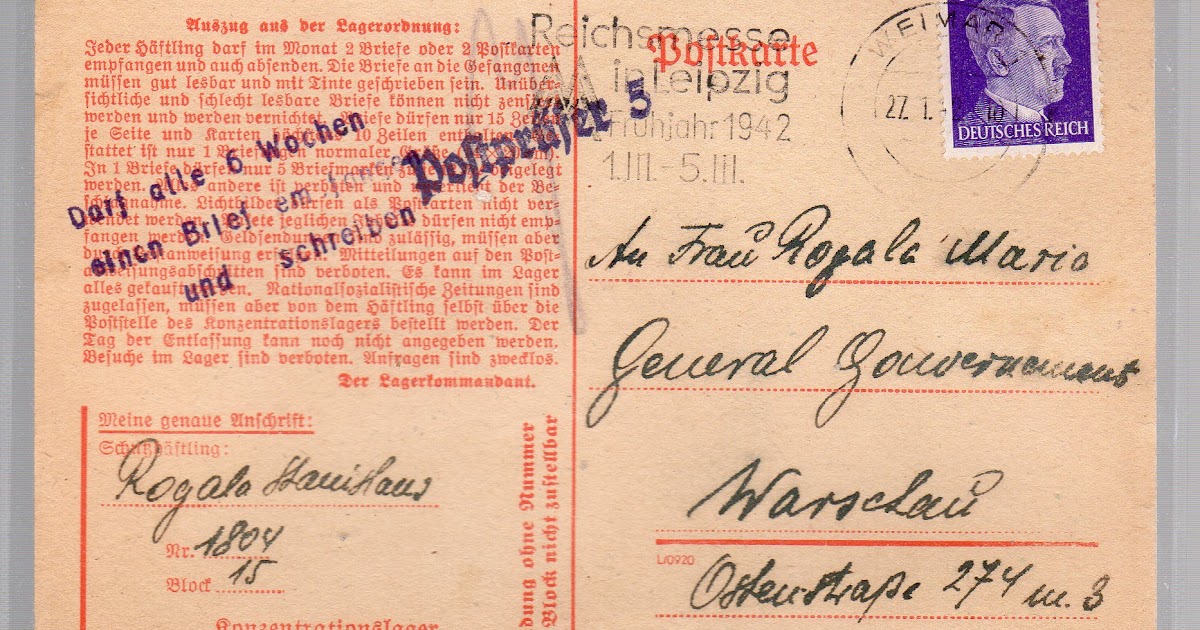 Auszug aus der Lagerordnung:
Jeder Häftling darf im Monat 2 Briefe oder 2 Postkarten
empfangen und auch absenden. Die Briefe an die Gefangenen
müssen gut lesbar und mit Tinte geschrieben sein. Unüber-
sichtliche und schlecht lesbare Briefe können nicht zensiert
werden und werden vernichtet. Briefe dürfen nur 15 Zeilen
je Seite und Karten 10 Zeilen enthalten.
stattet ist nur 1 Briefbogen normaler
In 1 Briefe dürfen nur 5 Briefmarken
werden. Alles andere ist verboten und verfällt der Be-
schlagnahme. Lichtbilder dürfen als Postkarten nicht ver-
wendet werden. Pakete jeglichen Inhalts dürfen nicht emp-
fangen werden. Geldsendungen sind zulässig, müssen aber
durch Postanweisung erfolgen. Mitteilungen auf den Post-
anweisungsabschnitten sind verboten. Es kann im Lager
alles gekauft werden. Nationalsozialistische Zeitungen sind
zugelassen, müssen aber von dem Häftling selbst über die
Poststelle des Konzentrationslagers bestellt werden. Der
Tag der Entlassung kann noch nicht angegeben werden.
Besuche im Lager sind verboten. Anfragen sind zwecklos.
Der Lagerkommandant.
Darf alle 6 Wochen
einen Brief empfangen
und schreiben
Postprüfer 5
Meine genaue Anschrift:
Schutzhäftling:
Rogala Stanislaus
Nr. 1804
Block 15
Konzentrationslager
dung ohne Nummer
Block nicht zustellbar
Postkarte
Reichsmesse
in Leipzig
Frühjahr 1942
1.III.-5.III.
WEIMAR
27. 1.
DEUTSCHES REICH
An Frau Rogala Maria
General Gouvernement
Warschau
L/0920
Ostenstraße 274 m. 3